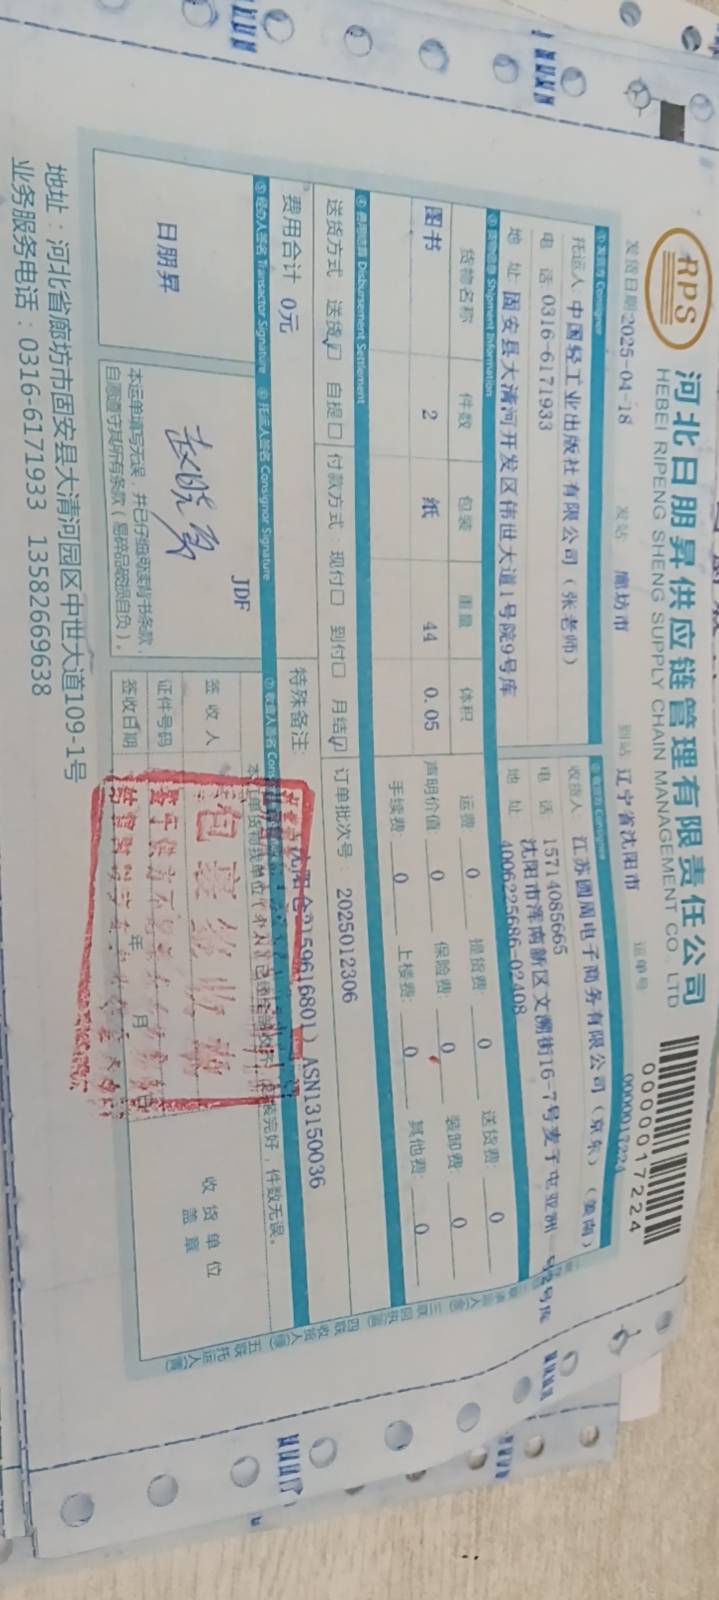 RPS
河北日朋昇供应链管理有限责任公司
HEBEI RIPENG SHENG SUPPLY CHAIN MANAGEMENT CO., LTD
0000017224
发货日期 2025-04-18 发站 廊坊市 到站 辽宁省沈阳市 运单号 0000017224
①发货方 Consignor
托运人 中国轻工业出版社有限公司（张老师）
电 话 0316-6171933
地 址 固安县大清河开发区伟世大道1号院9号库
收货人 江苏圆周电子商务有限公司（京东）（姜南）
电 话 15714085665
4006225686-02408
地 址 沈阳市浑南新区文溯街16-7号麦子屯亚洲一号2号库
③货物信息 Shipment Information
货物名称 件数 包装 重量 体积
图书 2 纸 44 0.05
运费: 0 提货费: 0 送货费: 0
声明价值: 0 保险费: 0 装卸费: 0
手续费: 0 上楼费: 0 其他费: 0
④费用结算 Disbursement Settlement
送货方式 送货☑ 自提☐ 付款方式: 现付☐ 到付☐ 月结☑ 订单批次号: 2025012306
费用合计 0元
特殊备注:
ASN13150036
⑤经办人签名 Transactor Signature ⑥托运人签名 Consignor Signature
日朋昇
JDF
本运单填写无误，并已仔细阅读背书条款，
自愿遵守其所有条款（易碎品破损自负）。
签 收 人
证件号码
签收日期 年 月 日
收 货 单 位
盖 章
地址：河北省廊坊市固安县大清河园区中世大道109-1号
业务服务电话：0316-6171933 13582669638